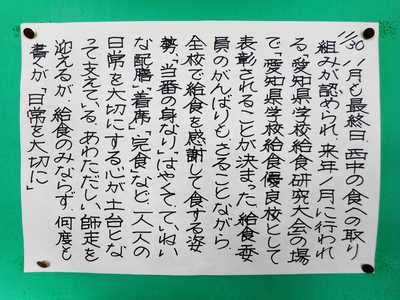 11/30 11月も最終日。西中の食への取り
組みが認められ、来年1月に行われ
る、"愛知県学校給食研究大会の場
で、"愛知県学校給食優良校として
表彰されることが決まった。給食委
員のがんばりもさることながら、
全校で給食を感謝して食する姿
勢、「当番の身なり」「はやくて、ていねい
な配膳」「着席」「完食」など、一人一人の
日常を大切にする心が土台とな
って支えている。あわただしい師走を
迎えるが、給食のみならず、何度も
書くが「日常を大切に」